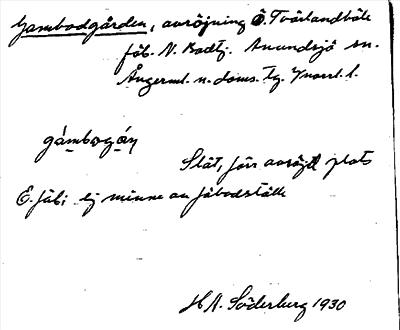 Gambodgården, avröjning Ö. Tvärlandböle
fäb. N. Anundsjö sn.
Ångerml. n. doms. tg. Vnorrl. l.
gámbogáɳ
Slät, förr avröjd plats
E. fäb; ej minne av fäbodställe
H.A. Söderberg 1930